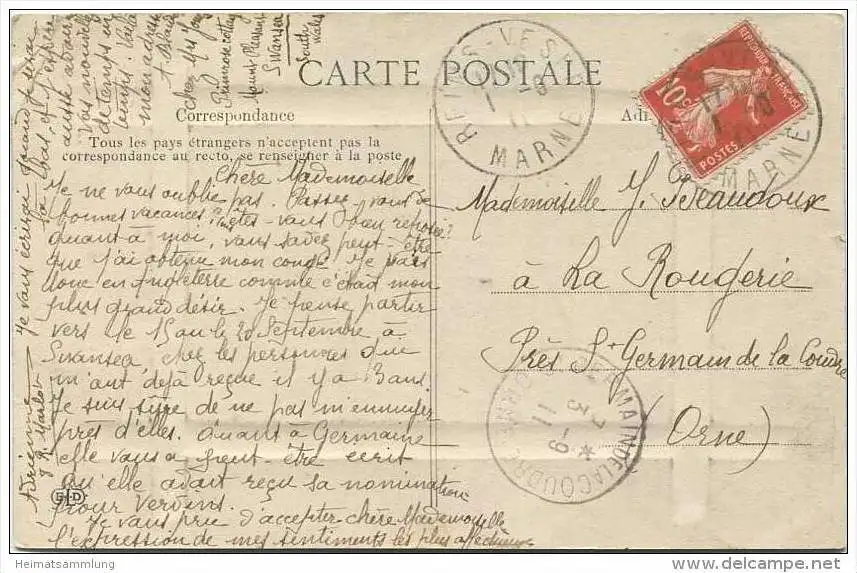 CARTE POSTALE
Correspondance
Tous les pays étrangers n'acceptent pas la
correspondance au recto, se renseigner à la poste
Chère Mademoiselle
Je ne vous oublie pas. Passez-vous de
bonnes vacances? êtes-vous bien reposée?
quant-à moi, vous savez peut-être
que j'ai obtenu mon congé. Je pars
donc en Angleterre comme c'était mon
plus grand désir. Je pense partir
vers le 15 ou le 20 Septembre à
Swansea chez les personnes qui
m'ont déjà reçue il y a 3 ans.
Je suis sûre de ne pas m'ennuyer
près d'elles. Quant à Germaine
elle vous a peut-être écrit
qu'elle avait reçu sa nomination
pour Vervins.
Je vous prie d'accepter chère Mademoiselle
l'expression de mes sentiments les plus affectueux
Adrienne
Je vous écrirai quand je serai
là-bas, et j'espère
aussi avoir
vos nouvelles
de temps en
temps. Voilà
mon adresse
chez
Primrose cottage
Mount Pleasant
Swansea
South
Wales
ELD
Mademoiselle Y. Beaudoux
à La Rougerie
Près St Germain de la Coudre
(Orne)
REIMS-VESLE
MARNE
10c
REPUBLIQUE FRANÇAISE
POSTES
MARNE
ST GERMAIN DE LA COUDRE
ORNE
3 -9
11
Heimatsammlung
delcampe.net